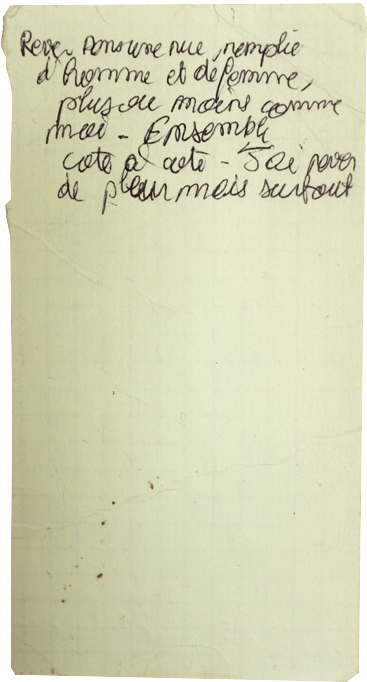 Rever dans une rue, remplie
d'homme et de femme,
plus ou moins comme
moi - Ensemble
cote a cote - J'ai
de pleur mais surtout